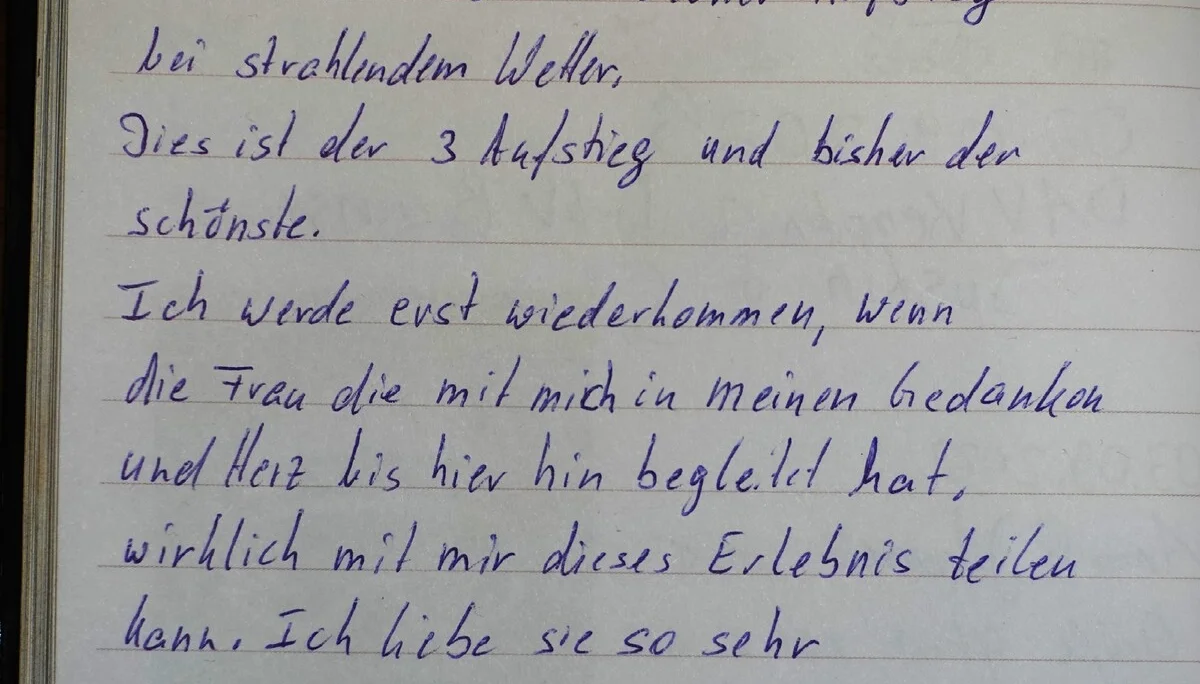 bei strahlendem Wetter.
Dies ist der 3 Aufstieg und bisher der
schönste.
Ich werde erst wiederkommen, wenn
die Frau die mit mich in meinen Gedanken
und Herz bis hier hin begleitet hat,
wirklich mit mir dieses Erlebnis teilen
kann. Ich liebe sie so sehr